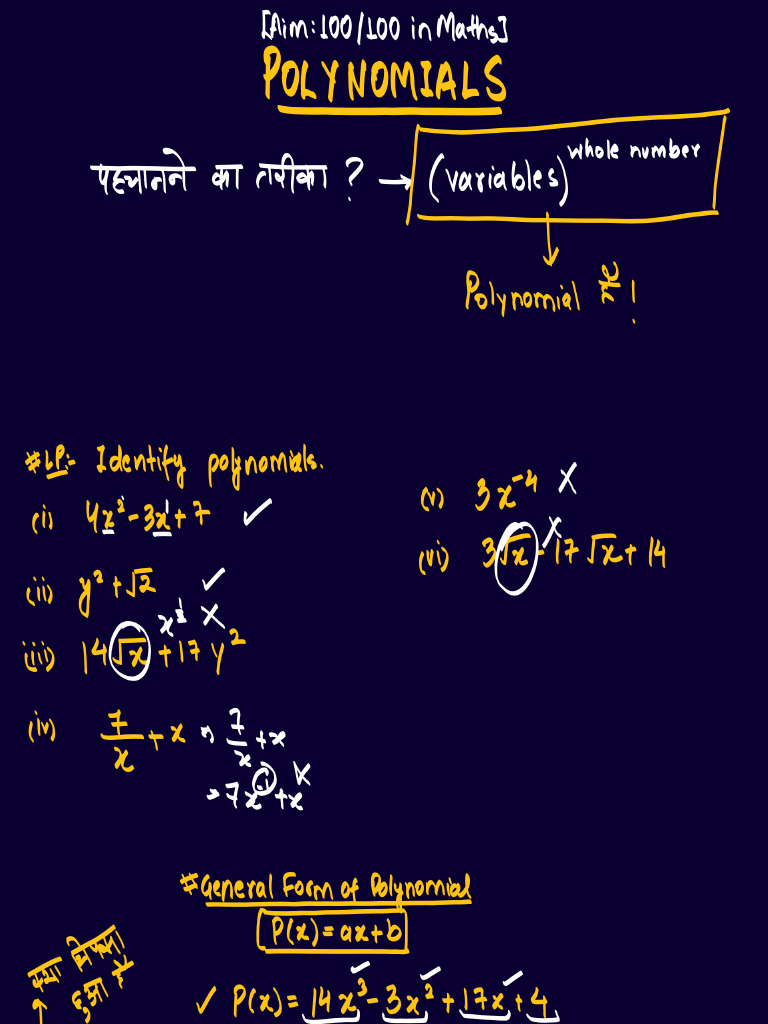 [Aim:100/100 in Maths]
POLYNOMIALS
पहचानने का तरीका ? → (variables)^whole number
Polynomial है !
#LP:- Identify polynomials.
(i) 4x² - 3x¹ + 7 ✓
(ii) y² + √2 ✓
(iii) 14√x + 17y² x^½ ✗
(iv) 7/x + x → 7/x + x
→ 7x^-1 + x ✗
(v) 3x⁻⁴ ✗
(vi) 3√x - 17√x + 14 ✗
#General Form of Polynomial
P(x) = ax+b
हुआ है
✓ P(x) = 14x³ - 3x² + 17x + 4